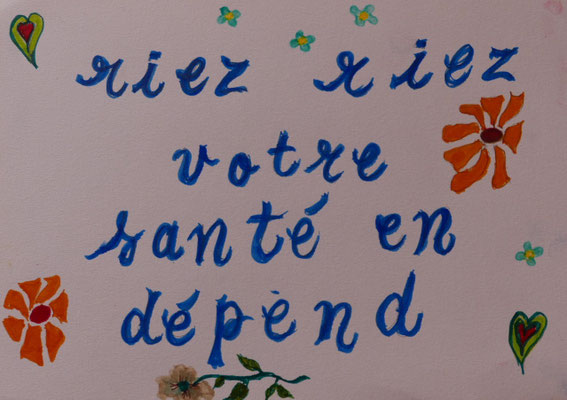 riez riez
votre
santé en
dépend